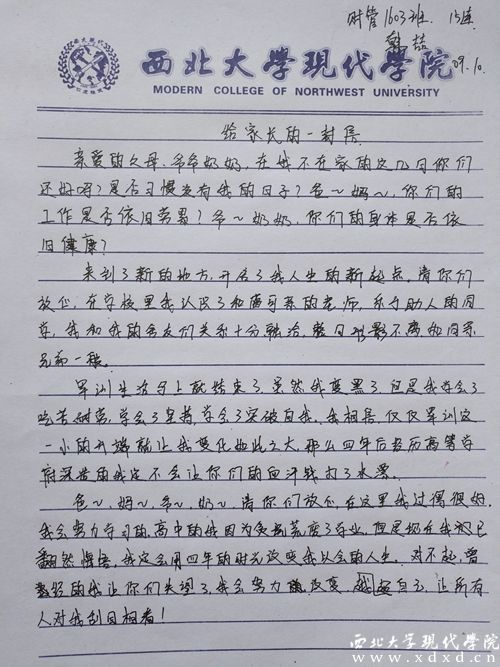 财管1603班 15连
09.10
西北大学现代学院
MODERN COLLEGE OF NORTHWEST UNIVERSITY
给家长的一封信
亲爱的父母,爷爷奶奶,在我不在家的这几日你们
还好吗?是否习惯没有我的日子?爸~妈~,你们的
工作是否依旧劳累?爷~奶奶,你们的身体是否依
旧健康?
来到了新的地方,开启了我人生的新起点。请你们
放心,在学校里我认识了和蔼可亲的老师,乐于助人的同
学,我和我的舍友们关系十分融洽,整日形影不离如同亲
兄弟一般。
军训生活马上就结束了,虽然我变黑了,但是我学会了
吃苦耐劳,学会了坚持,学会了突破自我。我相信,仅仅军训这
一小的开端就让我变化如此之大,那么四年后经历高等学
府深造的我定不会让你们的血汗钱打了水漂。
爸~,妈~,爷~,奶~,请你们放心,在这里我过得很好,
我会努力学习的,高中的我因为贪玩荒废了学业,但是现在我已
翻然悔悟,我定会用四年的时光改变我以会的人生。对不起,曾
经的我让你们失望了,我会努力改变,超越自己,让所有
人对我刮目相看!
西北大学现代学院
www.xdxd.cn